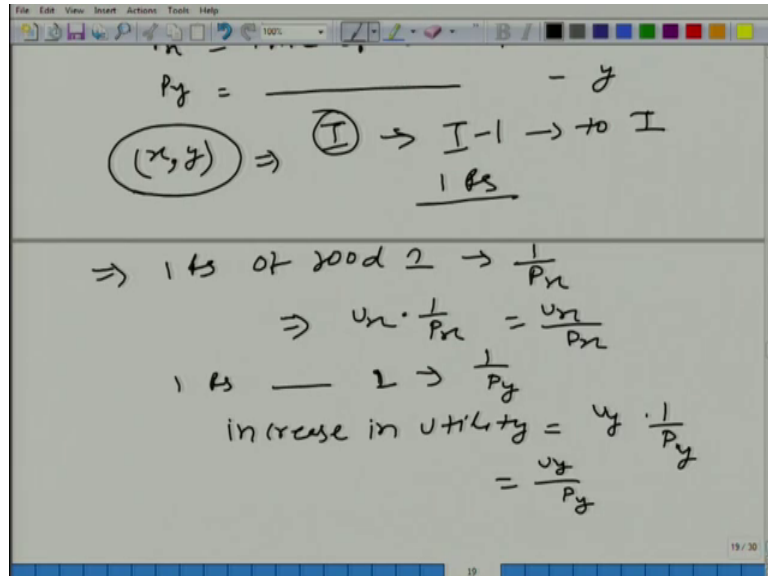 File Edit View Insert Actions Tools Help
100%
B I
Py = ——— - y
(x, y) ⇒ I → I-1 → to I
1 Rs
⇒ 1 Rs of good 2 → 1/Px
⇒ Ux · 1/Px = Ux/Px
1 Rs — 2 → 1/Py
increase in utility = Uy · 1/Py
= Uy/Py
19 / 30
19